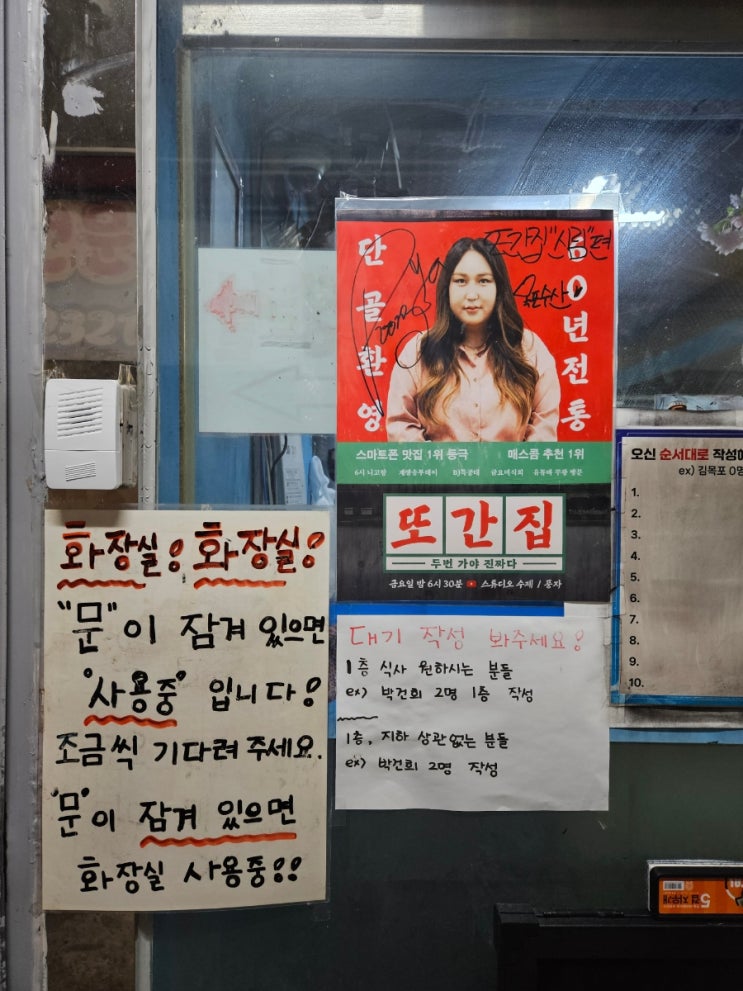 화장실! 화장실!
"문"이 잠겨 있으면
"사용중" 입니다!
조금씩 기다려 주세요.
"문"이 잠겨 있으면
화장실 사용중!!
단골환영
또간집 "신림"편
0년전통
스마트폰 맛집 1위 등극
매스컴 추천 1위
6시 니고향
또간집
두번 가야 진짜다
금요일 밤 6시 30분 스튜디오 수제 / 풍자
대기 작성 봐주세요!
1층 식사 원하시는 분들
ex) 박건희 2명 1층 작성
1층, 지하 상관없는 분들
ex) 박건희 2명 작성
오신 순서대로 작성
ex) 김목포 0명
1.
2.
3.
4.
5.
6.
7.
8.
9.
10.